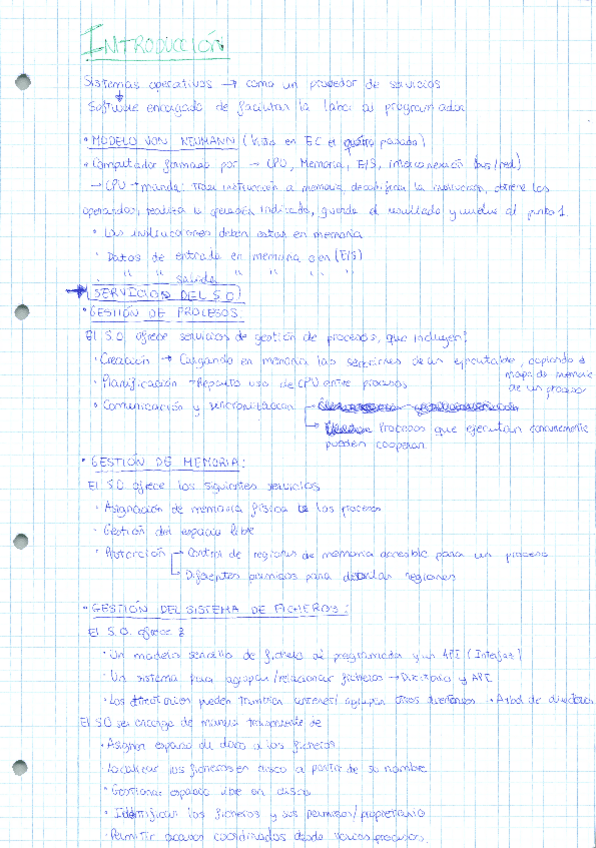 INTRODUCCIÓN
Sistemas operativos → como un proveedor de servicios
Software encargado de facilitar la labor al programador
• MODELO VON NEUMANN (Visto en EC el pasado)
• Computador formado por → CPU, Memoria, E/S, interconexión (bus/red)
→ CPU → manda: trae instrucción a memoria, decodificar la instrucción, obtiene los
operandos, realiza la operación indicada, guarda el resultado y vuelve al punto 1.
• Las instrucciones deben estar en memoria
• Datos de entrada en memoria o en (E/S)
" " salida " " " "
→ SERVICIOS DEL S.O
• GESTIÓN DE PROCESOS:
El S.O ofrece servicios de gestión de procesos, que incluyen:
• Creación → Cargando en memoria las secciones de un ejecutable, copiando el
mapa de memoria
de un proceso
• Planificación → Reparto uso de CPU entre procesos
• Comunicación y sincronización
→ Procesos que ejecutan
pueden cooperar
• GESTIÓN DE MEMORIA:
El S.O ofrece los siguientes servicios
• Asignación de memoria física a los procesos
• Gestión del espacio libre
• Abstracción → Control de regiones de memoria accesible para un proceso
→ Diferentes formatos para detallar regiones
• GESTIÓN DEL SISTEMA DE FICHEROS:
El S.O. ofrece:
• Un modelo sencillo de fichero al programador y un API (Interfaz)
• Un sistema para agrupar/relacionar ficheros → Directorio y API
• Los directorios pueden también contener/agrupar otros directorios • Arbol de directorios
El SO se encarga de manera transparente de
• Asignar espacio de disco a los ficheros
• Localizar los ficheros en disco a partir de su nombre
• Gestionar espacio libre en disco
• Identificar los ficheros y sus permisos/propietario
• Permitir accesos coordinados desde varios procesos.